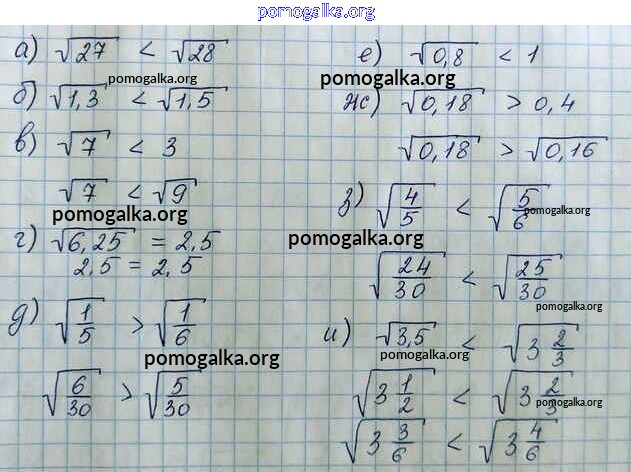 pomogalka.org
а) √27 < √28
pomogalka.org
б) √1,3 < √1,5
в) √7 < 3
√7 < √9
pomogalka.org
г) √6,25 = 2,5
2,5 = 2,5
д) √1/5 > √1/6
pomogalka.org
√6/30 > √5/30
е) √0,8 < 1
pomogalka.org
ж) √0,18 > 0,4
√0,18 > √0,16
з) √4/5 < √5/6
pomogalka.org
pomogalka.org
√24/30 < √25/30
pomogalka.org
и) √3,5 < √3 2/3
pomogalka.org
√3 1/2 < √3 2/3
pomogalka.org
√3 3/6 < √3 4/6